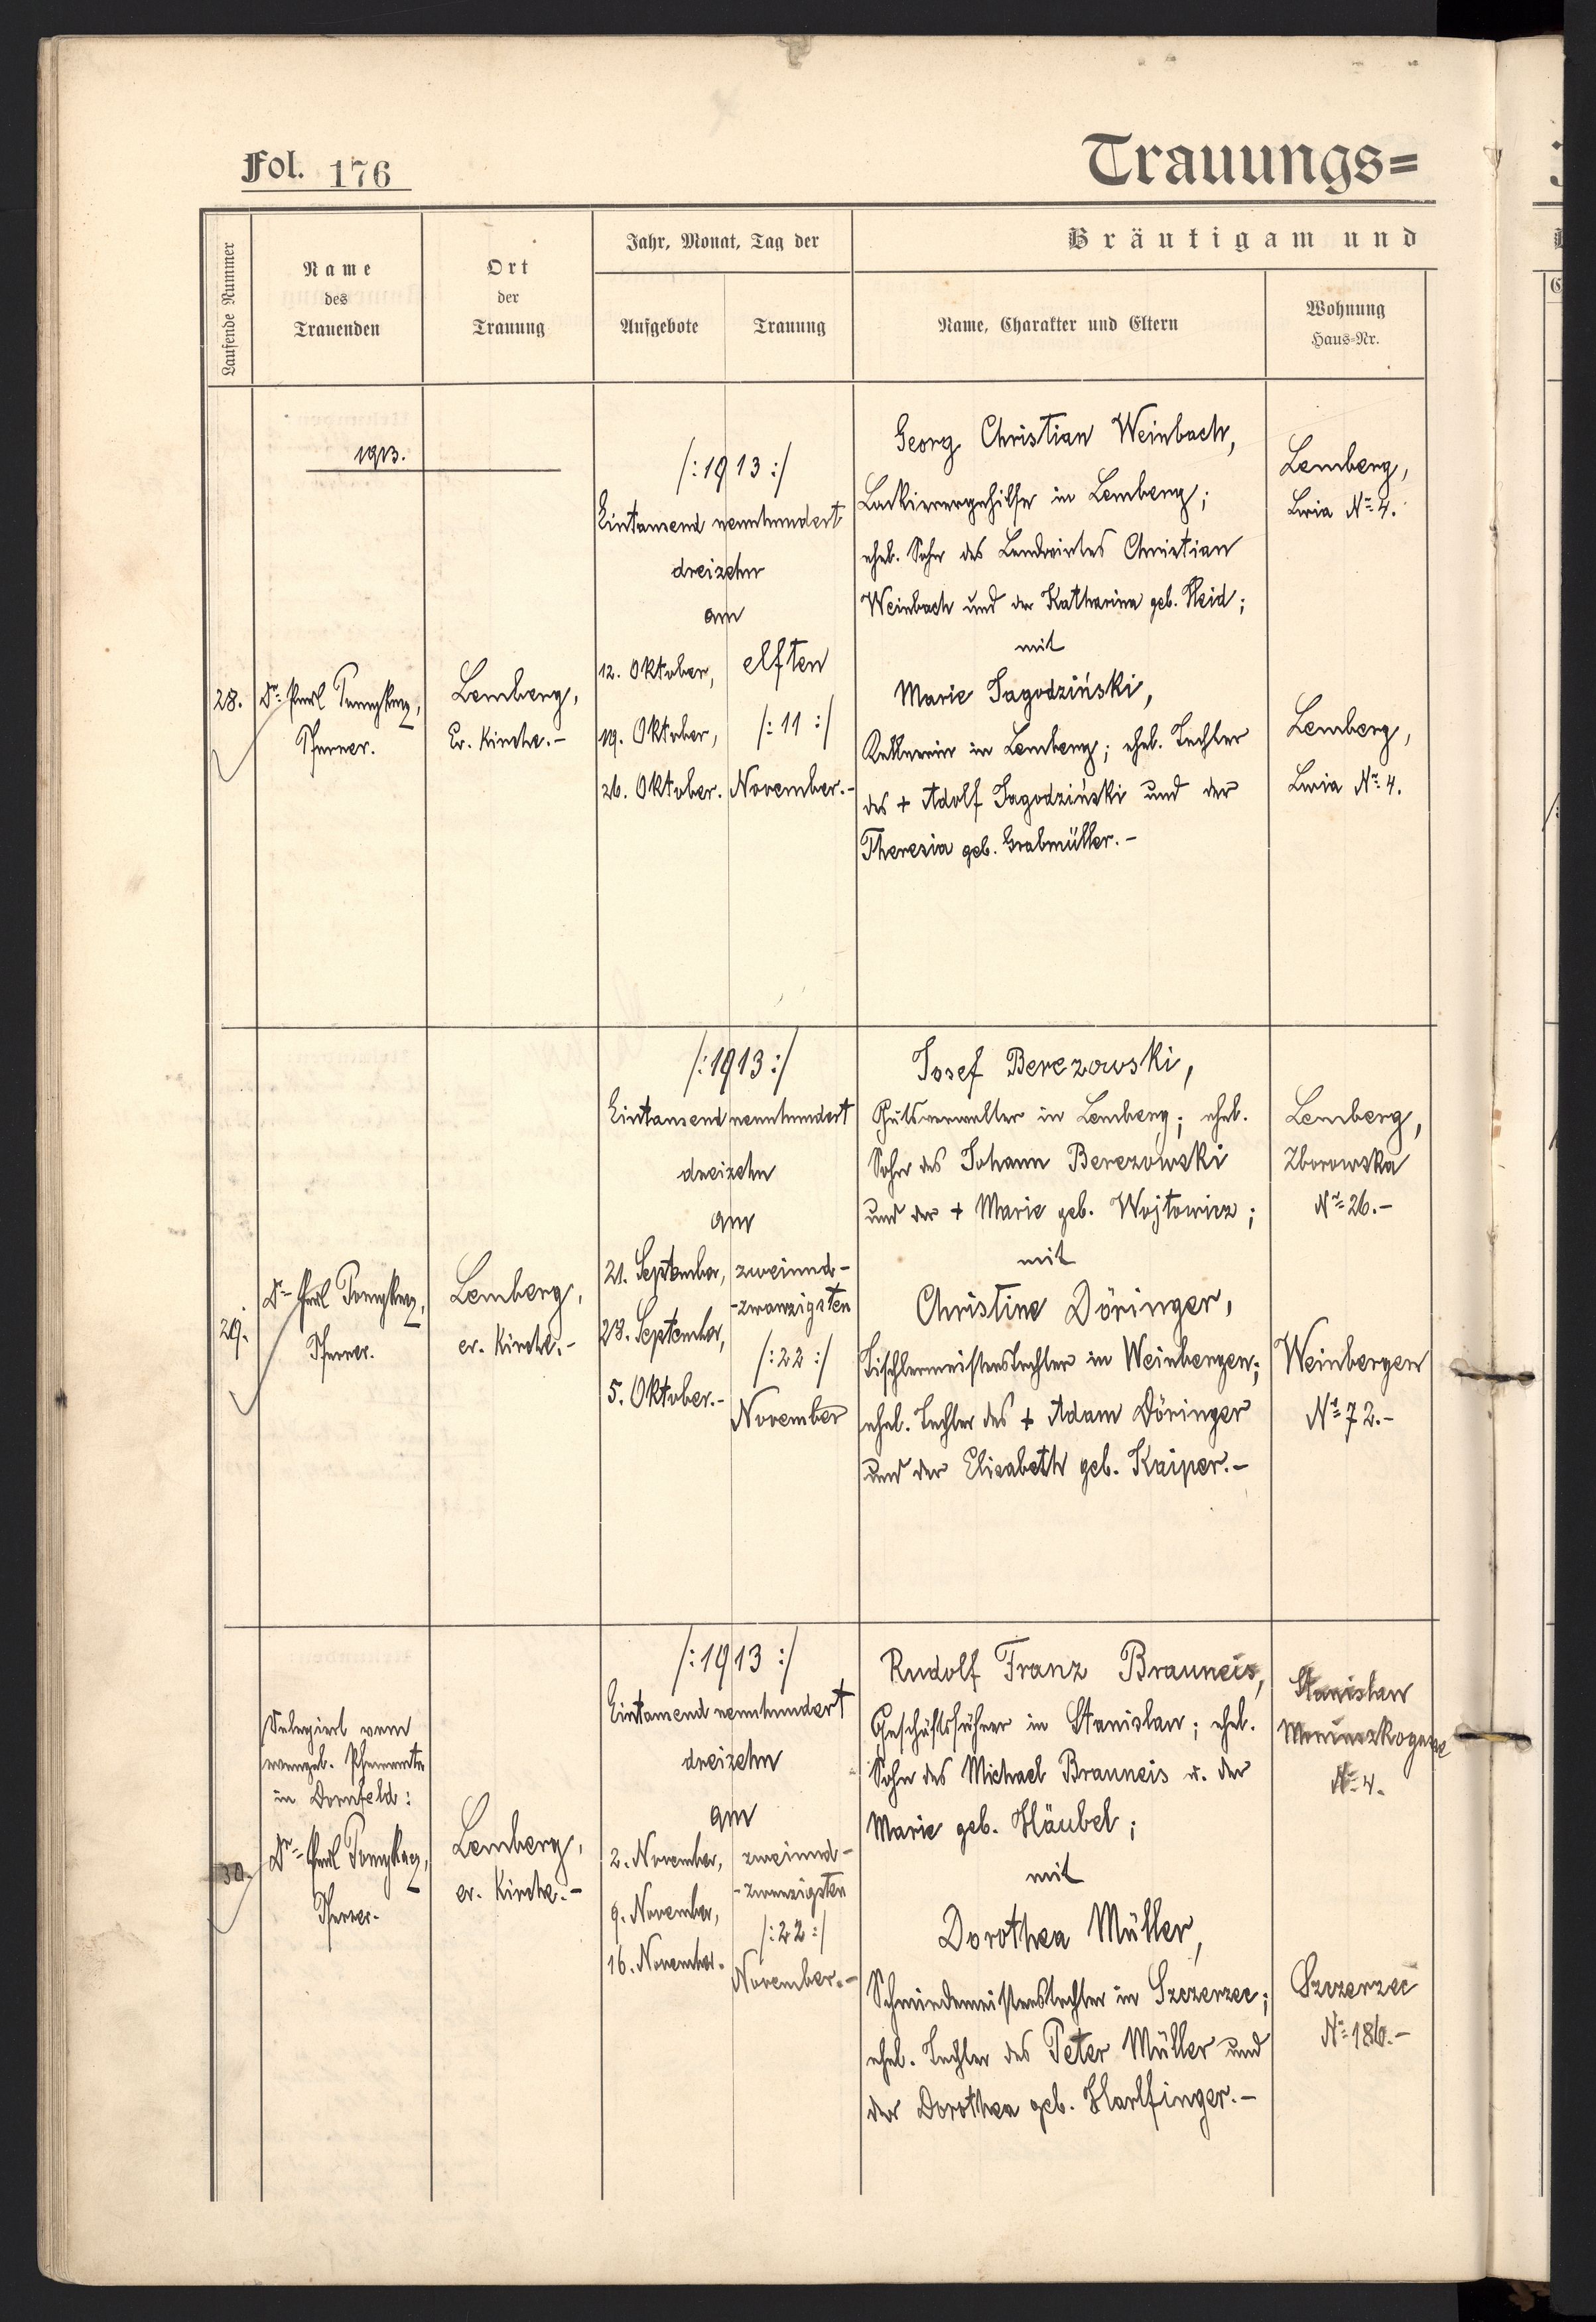 Fol. 176
Trauungs=
Laufende Nummer
Name
des
Trauenden
Ort
der
Trauung
Jahr, Monat, Tag der
Aufgebote
Trauung
Bräutigam und
Name, Charakter und Eltern
Wohnung
Haus=Nr.
1913.
28.
Dr. Paul
Pfarrer.
Lemberg,
Ev. Kirche.-
/:1913:/
Eintausend neunhundert
dreizehn
am
12. Oktober,
19. Oktober,
26. Oktober.
elften
/:11:/
November.-
Georg Christian Weinbach,
Lackierergehilfe in Lemberg;
ehel. Sohn des Landwirtes Christian
Weinbach und der Katharina geb. Heid;
mit
Marie Jagodziński,
in Lemberg; ehel. Tochter
des + Adolf Jagodziński und der
Theresia geb. Grabmüller.-
Lemberg,
Nr. 4.
Lemberg,
Nr. 4.
29.
Dr. Paul
Pfarrer.
Lemberg,
ev. Kirche.-
/:1913:/
Eintausend neunhundert
dreizehn
am
21. September,
28. September,
5. Oktober.-
zweiund-
-zwanzigsten
/:22:/
November
Josef Berezowski,
Gutsverwalter in Lemberg; ehel.
Sohn des Johann Berezowski
und der + Marie geb. Wojtowicz;
mit
Christine Döringer,
Tischlermeisterstochter in Weinbergen;
ehel. Tochter des + Adam Döringer
und der Elisabeth geb. Kaiper.-
Lemberg,
Zborowska
Nr. 26.-
Weinbergen
Nr. 72.-
30.
Delegiert vom
evangel. Pfarramte
in Dornfeld:
Dr. Paul
Pfarrer.
Lemberg,
ev. Kirche.-
/:1913:/
Eintausend neunhundert
dreizehn
am
2. November,
9. November,
16. November.
zweiund-
-zwanzigsten
/:22:/
November.-
Rudolf Franz Brauneis,
Geschäftsführer in Stanislau; ehel.
Sohn des Michael Brauneis u. der
Marie geb. Häubel;
mit
Dorothea Müller,
Schmiedemeisterstochter in Szczerzec;
ehel. Tochter des Peter Müller und
der Dorothea geb. Harlfinger.-
Stanislau
Nr. 4.
Szczerzec
Nr. 186.-